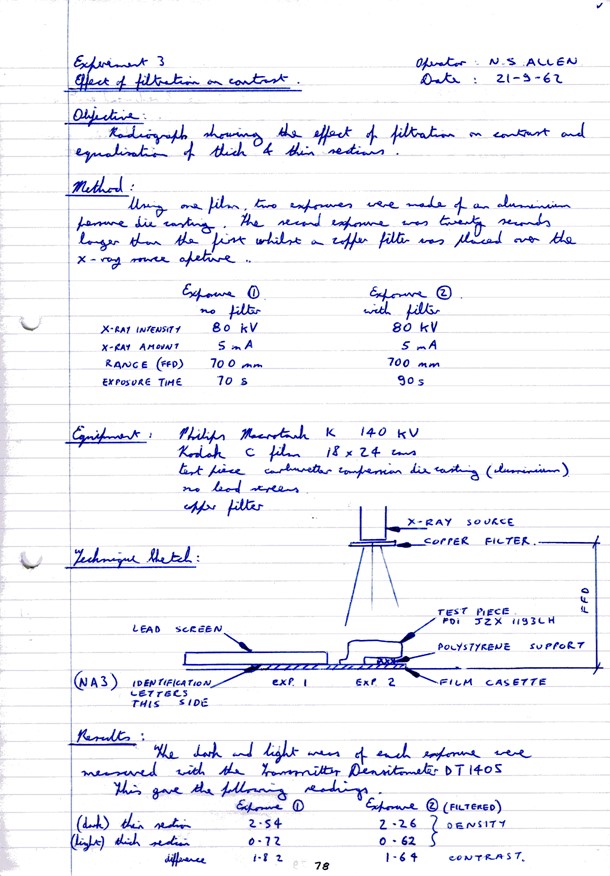 Experiment 3 Operator : N.S ALLEN
Effect of filtration on contrast. Date : 21-9-62
Objective :
Radiograph showing the effect of filtration on contrast and
equalisation of thick & thin sections.
Method :
Using one film, two exposures were made of an aluminium
pressure die casting. The second exposure was twenty seconds
longer than the first whilst a copper filter was placed over the
x-ray source apeture ..
Exposure ① Exposure ②.
no filter with filter
X-RAY INTENSITY 80 KV 80 KV
X-RAY AMOUNT 5 mA 5 mA
RANGE (FFD) 700 mm 700 mm
EXPOSURE TIME 70 s 90 s
Equipment : Philips Macrotank K 140 KV
Kodak C film 18 x 24 cms
test piece carburetter compression die casting (aluminium)
no lead screens
copper filter
X-RAY SOURCE
COPPER FILTER.
Technique Sketch :
FFD
TEST PIECE
PDI JZX 1193LH
LEAD SCREEN
POLYSTYRENE SUPPORT
(NA3) IDENTIFICATION EXP. 1 EXP 2 FILM CASETTE
LETTERS
THIS SIDE
Results :
The dark and light areas of each exposure were
measured with the Transmitter Densitometer DT1405
This gave the following readings.
Exposure ① Exposure ② (FILTERED)
(dark) thin section 2·54 2·26 } DENSITY
(light) thick section 0·72 0·62
difference 1·82 1·64 CONTRAST.
78